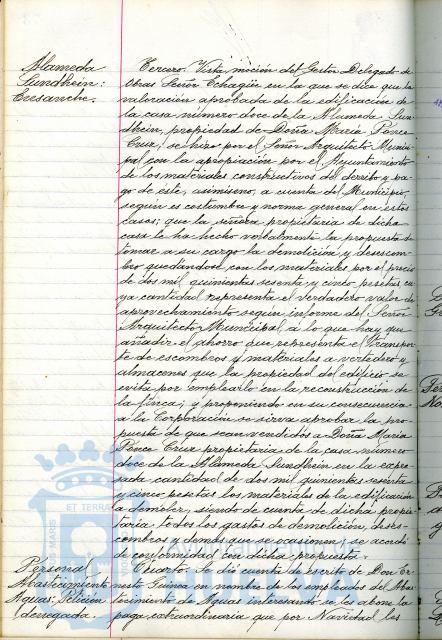 Alameda
Sundheim:
Ensanche.
Tercero. Vista moción del Gestor Delegado de
Obras Señor Echagüe en la que se dice que la
valoración aprobada de la edificación de
la casa número doce de la Alameda Sun-
dheim, propiedad de Doña María Ponce
Cruz, se hizo por el Señor Arquitecto Munici-
pal con la apropiación por el Ayuntamiento
de los materiales constructivos del derribo y pa-
go de éste, asimismo, a cuenta del Municipio
según es costumbre y norma general en estos
casos; que la señora propietaria de dicha
casa le ha hecho verbalmente la propuesta de
tomar a su cargo la demolición y desescom-
bro quedándose con los materiales por el precio
de dos mil quinientas sesenta y cinco pesetas cu-
ya cantidad representa el verdadero valor de
aprovechamiento según informe del Señor
Arquitecto Municipal, a lo que hay que
añadir el ahorro que representa el transpor-
te de escombros y materiales a vertedero y
almacenes que la propiedad del edificio se
evita por emplearlo en la reconstrucción de
la finca; y proponiendo en su consecuencia
a la Corporación se sirva aprobar la pro-
puesta de que sean vendidos a Doña María
Ponce Cruz propietaria de la casa número
doce de la Alameda Sundheim en la expre-
sada cantidad de dos mil quinientas sesenta
y cinco pesetas los materiales de la edificación
a demoler, siendo de cuenta de dicha propie-
taria todos los gastos de demolición, deses-
combros y demás que se ocasionen; se acordó
de conformidad con dicha propuesta.
Personal
Abastecimiento
Aguas: Petición
denegada.
Cuarto. Se dió cuenta de escrito de Don Er-
nesto Guinea en nombre de los empleados del Abas-
tecimiento de Aguas interesando se les abone la
paga extraordinaria que por Navidad les
ET TERRAE
MARIS
HUELVA